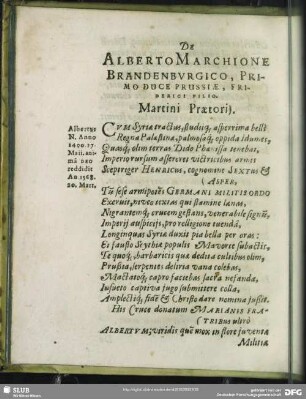 De
ALBERTO MARCHIONE
BRANDENBVRGICO, PRI-
MO DUCE PRUSSIÆ, FRI-
DERICI FILIO.
Martini Prætorij.
Albertus
N. Anno
1490. 17.
Maii. ani-
mā deo
reddidit
An. 1568.
20. Mart.
CVM Syriæ tractus, studiiq; asperrima belli
Regna Palæstina, palmosaq; oppida Idumes,
Quasq; olim terras Dido Phœnissa tenebat,
Imperio rursum assereret victricibus armis
Sceptriger HENRICVS, cognomine SEXTUS &
ASPER,
Tū sese armipotēs GERMANI MILITIS ORDO
Exeruit, niveo textas qui stamine lanas,
Nigrantemq; crucem gestans, venerabile signū,
Imperij auspicijs, pro religione tuendā,
Longinquas Syriæ duxit pia bella per oras:
Et fausto Scythiæ populis Mavorte subactis,
Te quoq; barbaricis quæ dedica cultibus olim,
Prussia, serpentes delira vana colebas,
Mactatoq; capro facebas sacra nefanda,
Iussit captiva jugo submittere colla,
Amplectiq; fidē & Christo dare nomina jussit.
His Cruce donatum MARIANIS FRA-
TRIBUS ultrò
ALBERTVM; viridis quē mox in flore juventa
Militiæ
SLUB
Wir führen Wissen.
gefördert von der
Deutschen Forschungsgemeinschaft
DFG